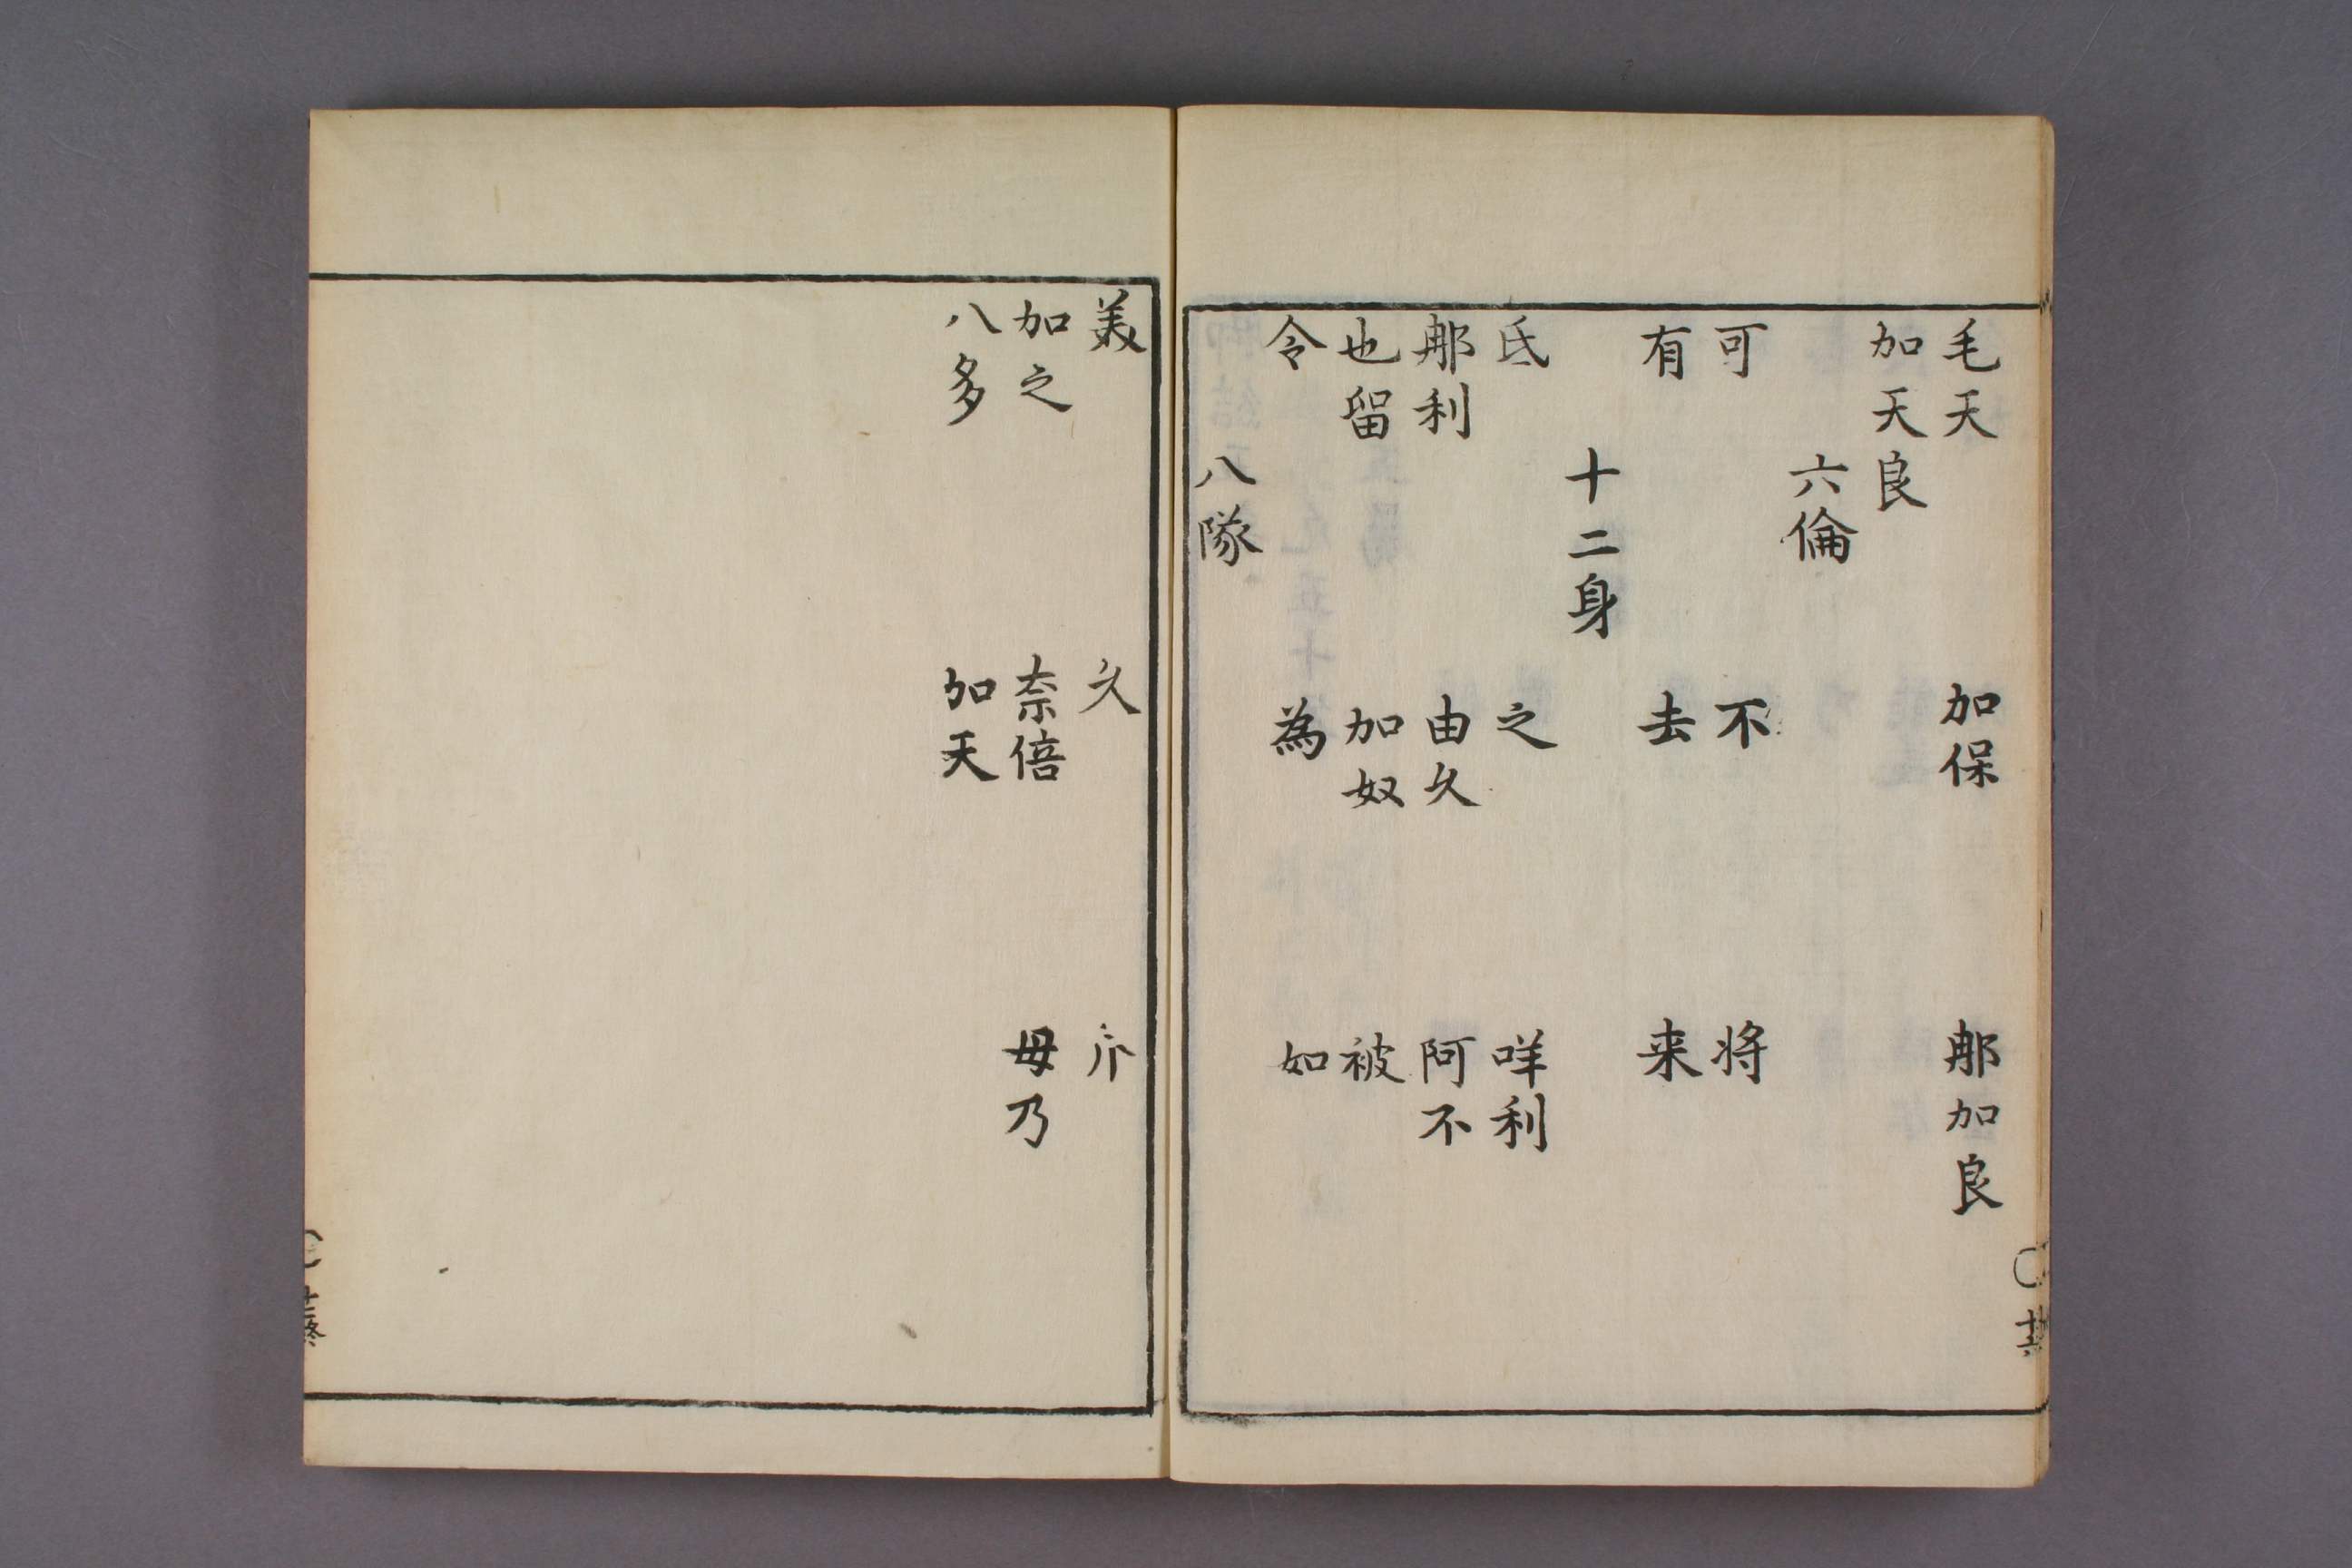 毛天 加保 那加良
加天良
六倫
可 不 将
有 去 来
十二身
氐 之 咩利
那利 由久 阿不
也留 加奴 被
令 為 如
八隊
美 久
加之 奈倍 母乃
八多 加天